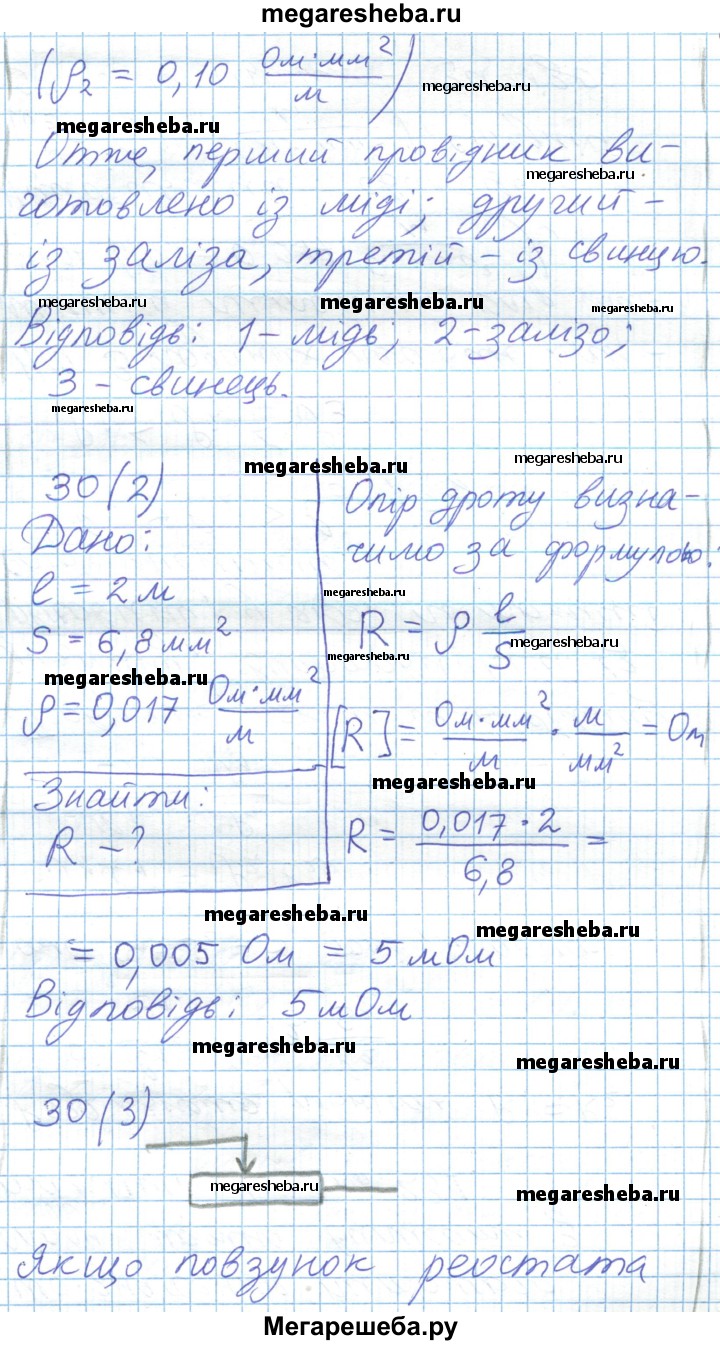 megaresheba.ru
(ρ₂ = 0,10 Ом·мм²/м)
megaresheba.ru
megaresheba.ru
Отже, перший провідник ви-
megaresheba.ru
готовлено із міді; другий -
із заліза, третій - із свинцю.
megaresheba.ru megaresheba.ru megaresheba.ru
Відповідь: 1 - мідь; 2 - залізо;
3 - свинець.
megaresheba.ru
megaresheba.ru megaresheba.ru
30(2)
Дано:
l = 2 м
S = 6,8 мм²
megaresheba.ru
ρ = 0,017 Ом·мм²/м
Знайти:
R - ?
Опір дроту визна-
чимо за формулою:
megaresheba.ru
R = ρ l/S
megaresheba.ru
megaresheba.ru
[R] = Ом·мм²/м · м/мм² = Ом
megaresheba.ru
R = 0,017·2/6,8 =
megaresheba.ru
megaresheba.ru
= 0,005 Ом = 5 мОм
Відповідь: 5 мОм
megaresheba.ru
megaresheba.ru
30(3)
megaresheba.ru
megaresheba.ru
Якщо повзунок реостата
Мегарешеба.ру